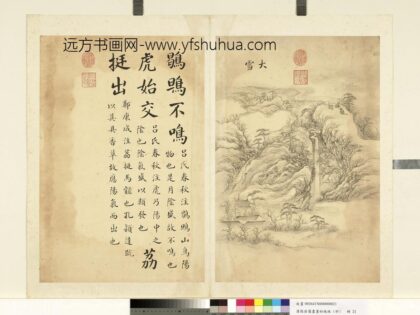 远方书画网-www.yfshuhua.com
大雪
鶡鴠不鳴
呂氏春秋注鶡鴠山鳥陽
物也是月陰盛故不鳴也
虎始交
呂氏春秋注虎乃陽中之
陰也陰氣盛以類發也
荔
挺出
鄭康成注荔挺馬薤也孔穎達疏
以其具香草故應陽氣而出也